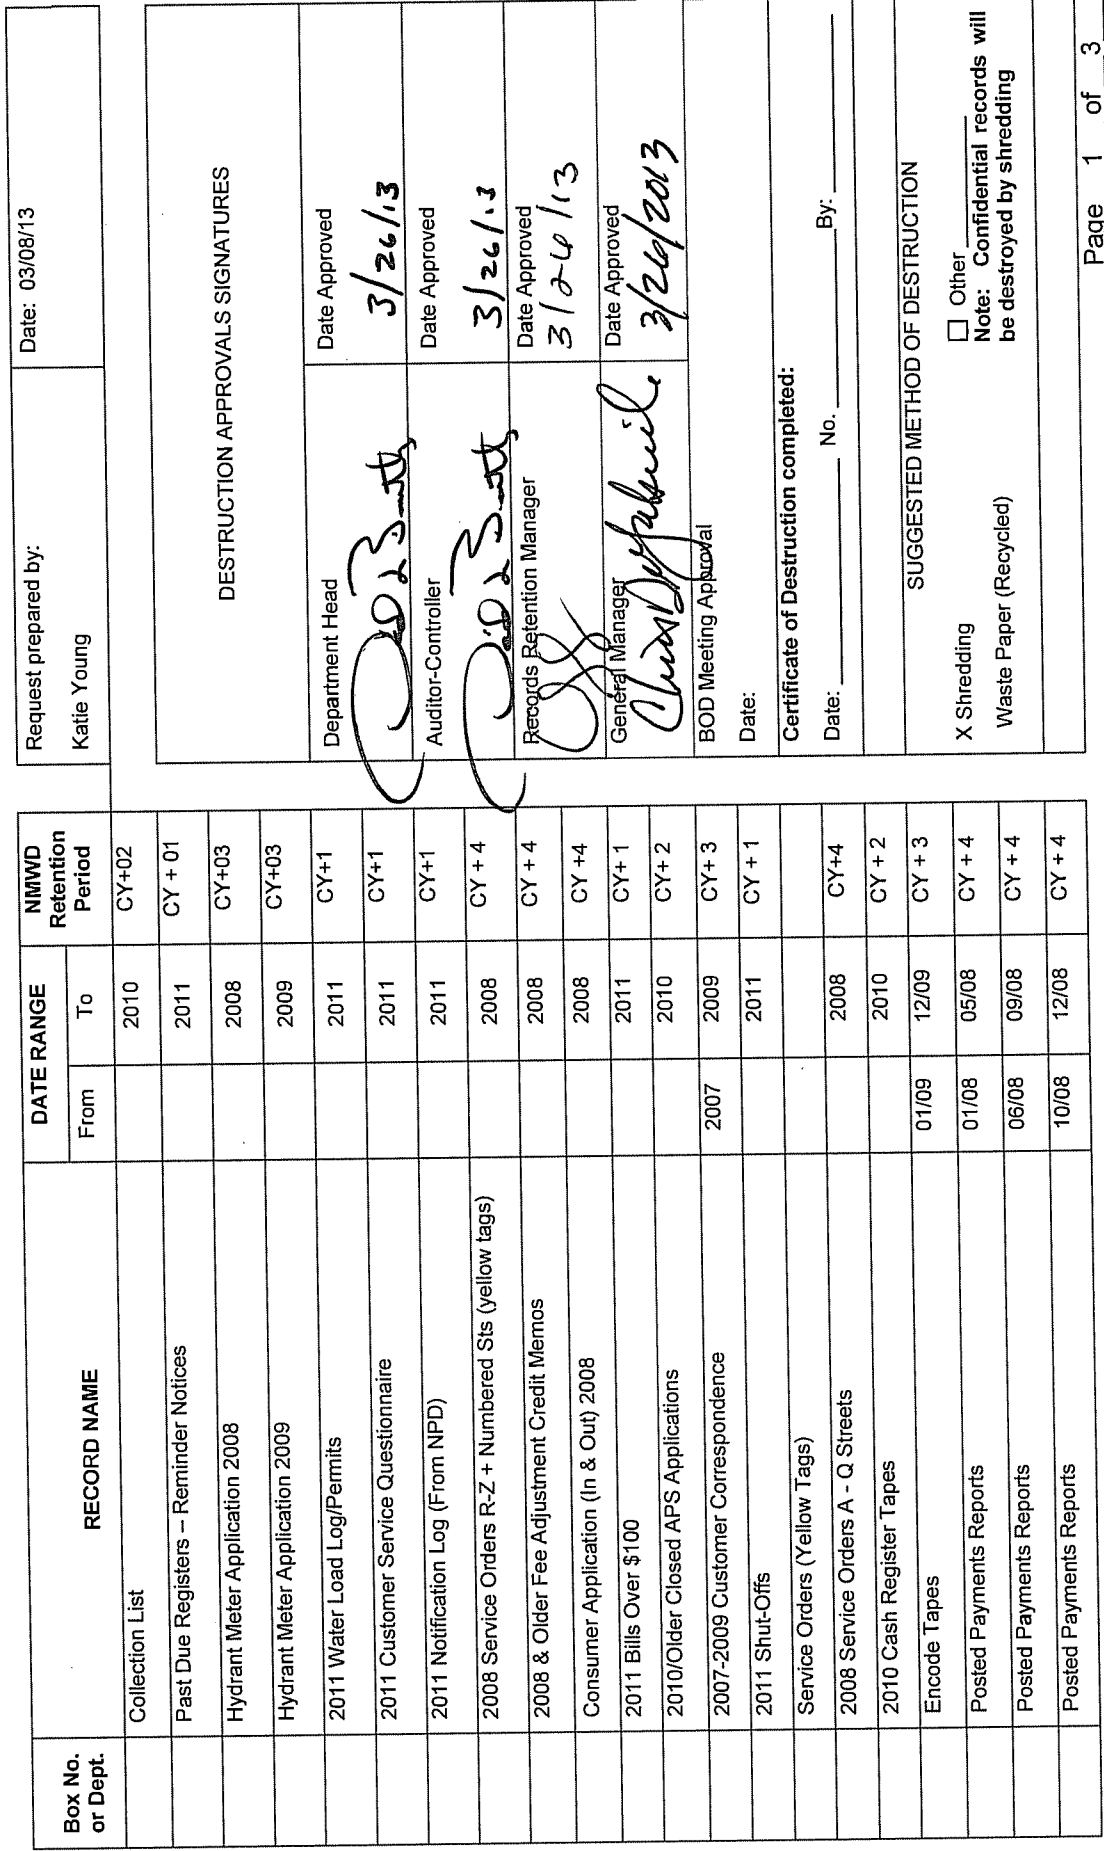 Box No. or Dept. RECORD NAME DATE RANGE NMWD Retention Period
From To
Collection List 2010 CY+02
Past Due Registers – Reminder Notices 2011 CY + 01
Hydrant Meter Application 2008 2008 CY+03
Hydrant Meter Application 2009 2009 CY+03
2011 Water Load Log/Permits 2011 CY+1
2011 Customer Service Questionnaire 2011 CY+1
2011 Notification Log (From NPD) 2011 CY+1
2008 Service Orders R-Z + Numbered Sts (yellow tags) 2008 CY + 4
2008 & Older Fee Adjustment Credit Memos 2008 CY + 4
Consumer Application (In & Out) 2008 2008 CY +4
2011 Bills Over $100 2011 CY+ 1
2010/Older Closed APS Applications 2010 CY+ 2
2007-2009 Customer Correspondence 2007 2009 CY+ 3
2011 Shut-Offs 2011 CY + 1
Service Orders (Yellow Tags)
2008 Service Orders A - Q Streets 2008 CY+4
2010 Cash Register Tapes 2010 CY + 2
Encode Tapes 01/09 12/09 CY + 3
Posted Payments Reports 01/08 05/08 CY + 4
Posted Payments Reports 06/08 09/08 CY + 4
Posted Payments Reports 10/08 12/08 CY + 4
Request prepared by:
Katie Young
Date: 03/08/13
DESTRUCTION APPROVALS SIGNATURES
Department Head Date Approved
3/26/13
Auditor-Controller Date Approved
3/26/13
Records Retention Manager Date Approved
3/26/13
General Manager Date Approved
3/26/2013
BOD Meeting Approval
Date:
Certificate of Destruction completed:
Date: No. By:
SUGGESTED METHOD OF DESTRUCTION
X Shredding
Waste Paper (Recycled)
☐ Other
Note: Confidential records will
be destroyed by shredding
Page 1 of 3